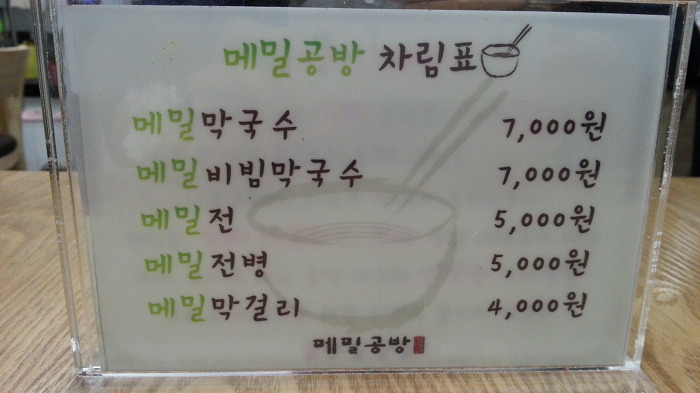 메밀공방 차림표
메밀막국수 7,000원
메밀비빔막국수 7,000원
메밀전 5,000원
메밀전병 5,000원
메밀막걸리 4,000원
메밀공방